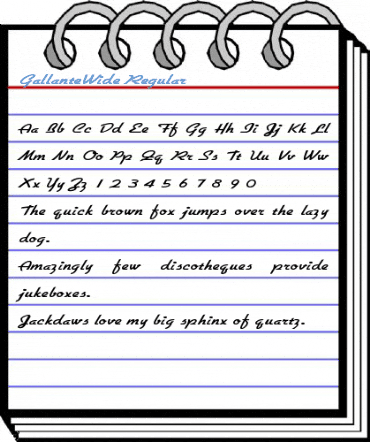 GallanteWide Regular
Aa Bb Cc Dd Ee Ff Gg Hh Ii Jj Kk Ll
Mm Nn Oo Pp Qq Rr Ss Tt Uu Vv Ww
Xx Yy Zz 1 2 3 4 5 6 7 8 9 0
The quick brown fox jumps over the lazy
dog.
Amazingly few discotheques provide
jukeboxes.
Jackdaws love my big sphinx of quartz.